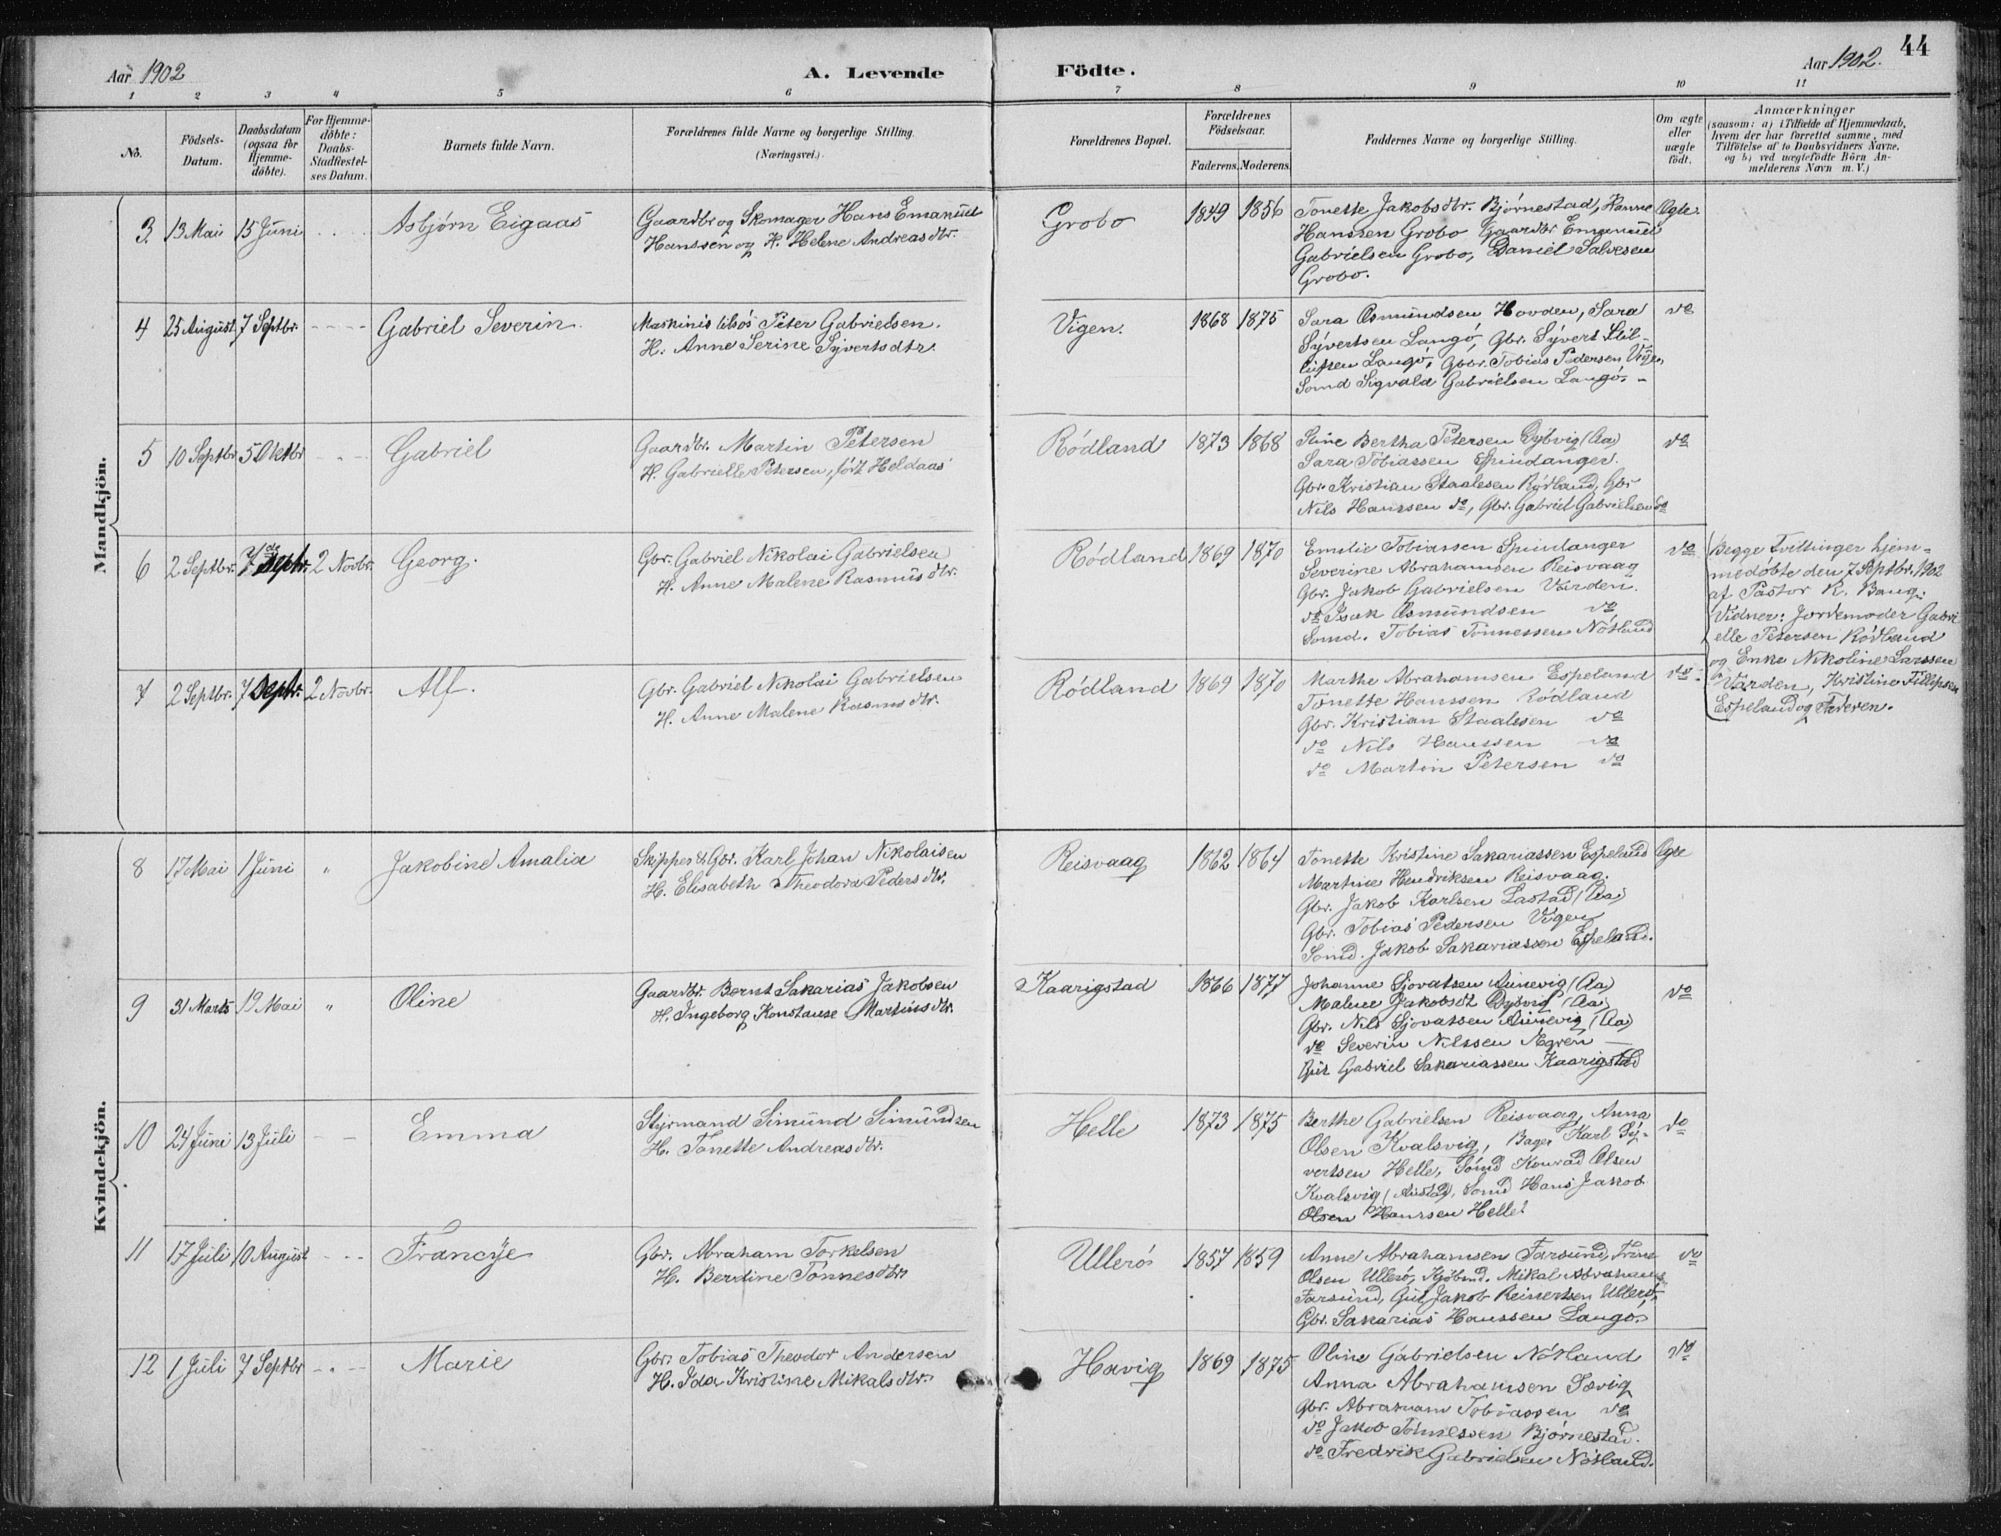 44
Aar 1902
A. Levende
Födte.
Aar 1902.
1 2 3 4 5 6 7 8 9 10 11
No.
Födsels-
Datum.
Daabsdatum
(ogsaa for
Hjemme-
döbte).
For Hjemme-
döbte:
Daabs-
Stadfæstel-
ses Datum.
Barnets fulde Navn.
Forældrenes fulde Navne og borgerlige Stilling.
(Næringsvei.)
Forældrenes Bopæl.
Forældrenes
Födselsaar.
Faderens.
Moderens.
Faddernes Navne og borgerlige Stilling.
Om ægte
eller
uægte
födt.
Anmærkninger
(saasom: a) i Tilfælde af Hjemmedaab,
hvem der har forrettet samme, med
Tilföielse af to Daabsvidners Navne,
og b) ved uægtefödte Börn An-
melderens Navn m. V.)
Mandkjön.
3. 13 Mai 15 Juni Asbjørn Eigaas
Gaardbr og Skomager Hans Emanuel
Hanssen og H. Helene Andreasdtr.
Grobo 1849 1856
Tonette Jakobsdtr. Bjørnestad, Hanne
Hanssen Grobo Gaardbr Emanuel
Gabrielsen Grobo, Daniel Salvesen
Grobo.
Ægte.
4 25 August 7 Septbr. Gabriel Severin.
Maskinist Peter Gabrielsen.
H. Anne Serine Syvertsdtr.
Vigen. 1868 1875
Sara Osmundsen Hovden, Sara
Syvertsen Langø, Gbr. Syvert
Langø, Gbr. Tobias Pedersen Vigen,
Sømd Sigvald Gabrielsen Langø. -
do
5 10 Septbr 5 Oktbr Gabriel
Gaardbr. Martin Petersen
H. Gabrielle Petersen, født Heldaas
Rødland 1873 1868
Stine Bertha Petersen Dybvig (Aa)
Sara Tobiassen Spindanger.
Gbr. Kristian Staalesen Rødland, Gbr
Nils Hanssen do, Gbr. Gabriel Gabrielsen do
do
6 2 Septbr. 7de Septr. 2 Novbr. Georg.
Gbr. Gabriel Nikolai Gabrielsen
H. Anne Malene Rasmusdtr.
Rødland 1869 1870
Emilie Tobiassen Spindanger
Severine Abrahamsen Reisvaag
Gbr. Jakob Gabrielsen Varden.
do Isak Osmundsen do
Sømd. Tobias Tønnessen Nøtland
do
Begge Tvillinger hjem-
medøbte den 7 Septbr. 1902
af Pastor K. Bang.
Vidner: Jordemoder Gabri
elle Petersen Rødland
og Enke Nikoline Larssen
Varden, Kristine Fillipsen
Espeland og Faderen.
7 2 Septbr. 7 Septr. 2 Novbr. Alf.
Gbr. Gabriel Nikolai Gabrielsen
H. Anne Malene Rasmusdtr.
Rødland 1869 1870
Marthe Abrahamsen Espeland
Tonette Hanssen Rødland
Gbr. Kristian Staalesen do
do Nils Hanssen do
do Martin Petersen do
do
Kvindekjön.
8 17 Mai 1 Juni " Jakobine Amalia
Skipper & Gbr. Karl Johan Nikolaisen
H. Elisabeth Theodora Pedersdtr.
Reisvaag 1862 1864
Tonette Kristine Sakariassen Espeland
Martine Hendriksen Reisvaag.
Gbr. Jakob Karlsen Lastad (Aa)
Gbr. Tobias Pedersen Vigen
Sømd. Jakob Sakariassen Espeland.
Ægte
9 31 Marts 19 Mai " Oline
Gaardbr. Bernt Sakarias Jakobsen
H. Ingeborg Konstanse Martinsdtr.
Kaarigstad 1866 1877
Johanne Sjovatsen Aunevig (Aa)
Malene Jakobsdt Dybvig (Aa)
Gbr. Nils Sjovatsen Aunevig (Aa)
do Severin Nilssen Ægren
Gut Gabriel Sakariassen Kaarigstad
do
10 24 Juni 13 Juli Emma
Styrmand Simund Simundsen
H. Tonette Andreasdtr.
Helle 1873 1875
Berthe Gabrielsen Reisvaag, Anna
Olsen Kvalsvig, Bager Karl Sy-
vertsen Helle, Sømd Konrad Olsen
Kvalsvig (Austad), Sømd Hans Jakob
Olsen Hanssen Helle.
do
11 17 Juli 10 August Francye
Gbr. Abraham Torkelsen
H. Berdine Tønnesdtr.
Ullerø 1857 1859
Anne Abrahamsen Farsund, Trine
Olsen Ullerø, Kjøbmd. Mikal Abrahams
Farsund, Gut Jakob Reinertsen Ullerø,
Gbr. Sakarias Hanssen Langø.
do
12 1 Juli 7 Septbr Marie
Gbr. Tobias Theodor Andersen
H. Ida Kristine Mikalsdtr.
Havig 1869 1875
Oline Gabrielsen Nøtland
Anna Abrahamsen Sævig
Gbr. Abraham Tobiassen do
do Jakob Tønnessen Bjørnestad.
do Fredrik Gabrielsen Nøtland.
do